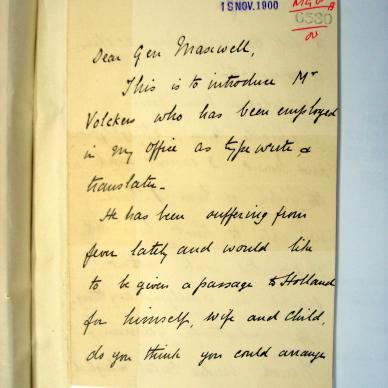 19 NOV. 1900
Dear Gen Maxwell,
This is to introduce Mr
Volckers who has been employed
in my office as type writer &
translater_
He has been suffering from
fever lately and would like
to be given a passage to Holland
for himself, wife and child,
do you think you could arrange